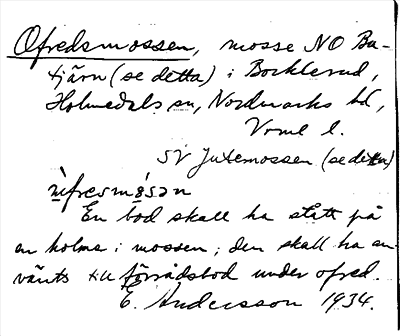 Ofredsmossen, mosse NO Ba-
tjärn (se detta) i Bocklerud,
Holmedals sn, Nordmarks hd,
Vrml l.
SV Jutemossen (se detta)
ùfresmòsən
En bod skall ha stått på
en holme i mossen; den skall ha an-
vänts till förrådsbod under ofred.
E. Andersson 1934.